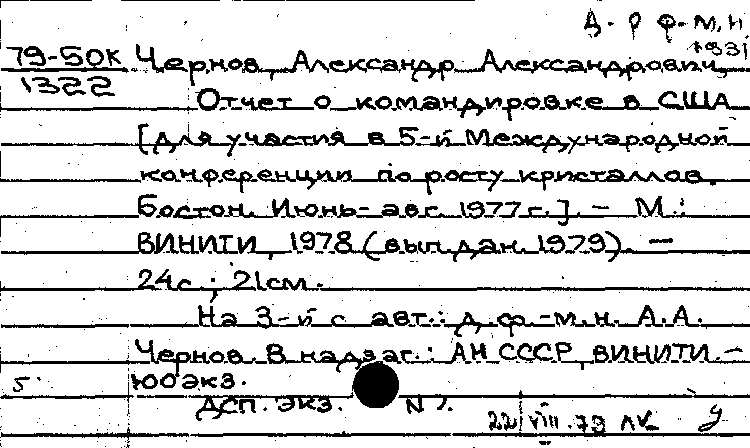 Д-р ф.-м.н
1931
79-50К Чернов, Александр Александрович,
1322
Отчет о командировке в США
[для участия в 5-й Международной
конференции по росту кристаллов.
Бостон. Июнь-авг. 1977г.]. — М.:
ВИНИТИ, 1978 (вып.дан. 1979). —
24с.; 21см.
На 3-й с авт.: д.ф.-м.н. А.А.
Чернов. В надзаг.: АН СССР, ВИНИТИ. —
100экз.
5
ДСП. Экз. N 2.
22/VIII.79